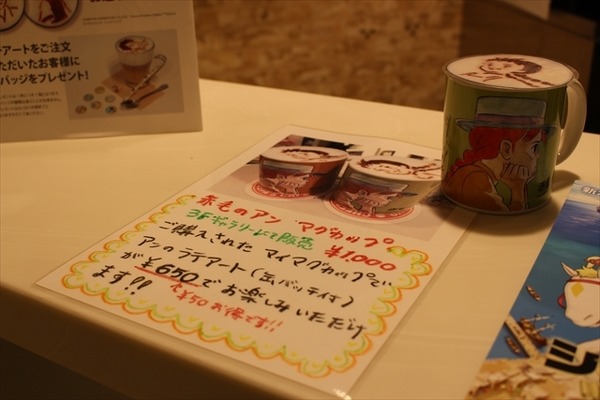 テアートをご注文
ただいたお客様に
バッジをプレゼント!
赤毛のアン マグカップ
3Fギャラリーにて販売 ¥1,000
ご購入された マイマグカップで
アンのラテアート(缶バッジ付)
が ¥650で お楽しみいただけ
ます!!
¥50お得です!!